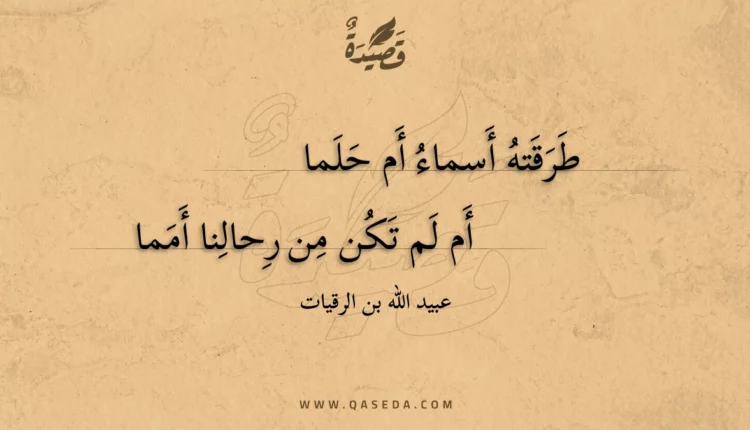 قَصِيْدَةٌ
طَرَقَتهُ أَسماءُ أَم حَلَما
أَم لَم تَكُن مِن رِحالِنا أَمَما
عبيد الله بن الرقيات
WWW.QASEDA.COM